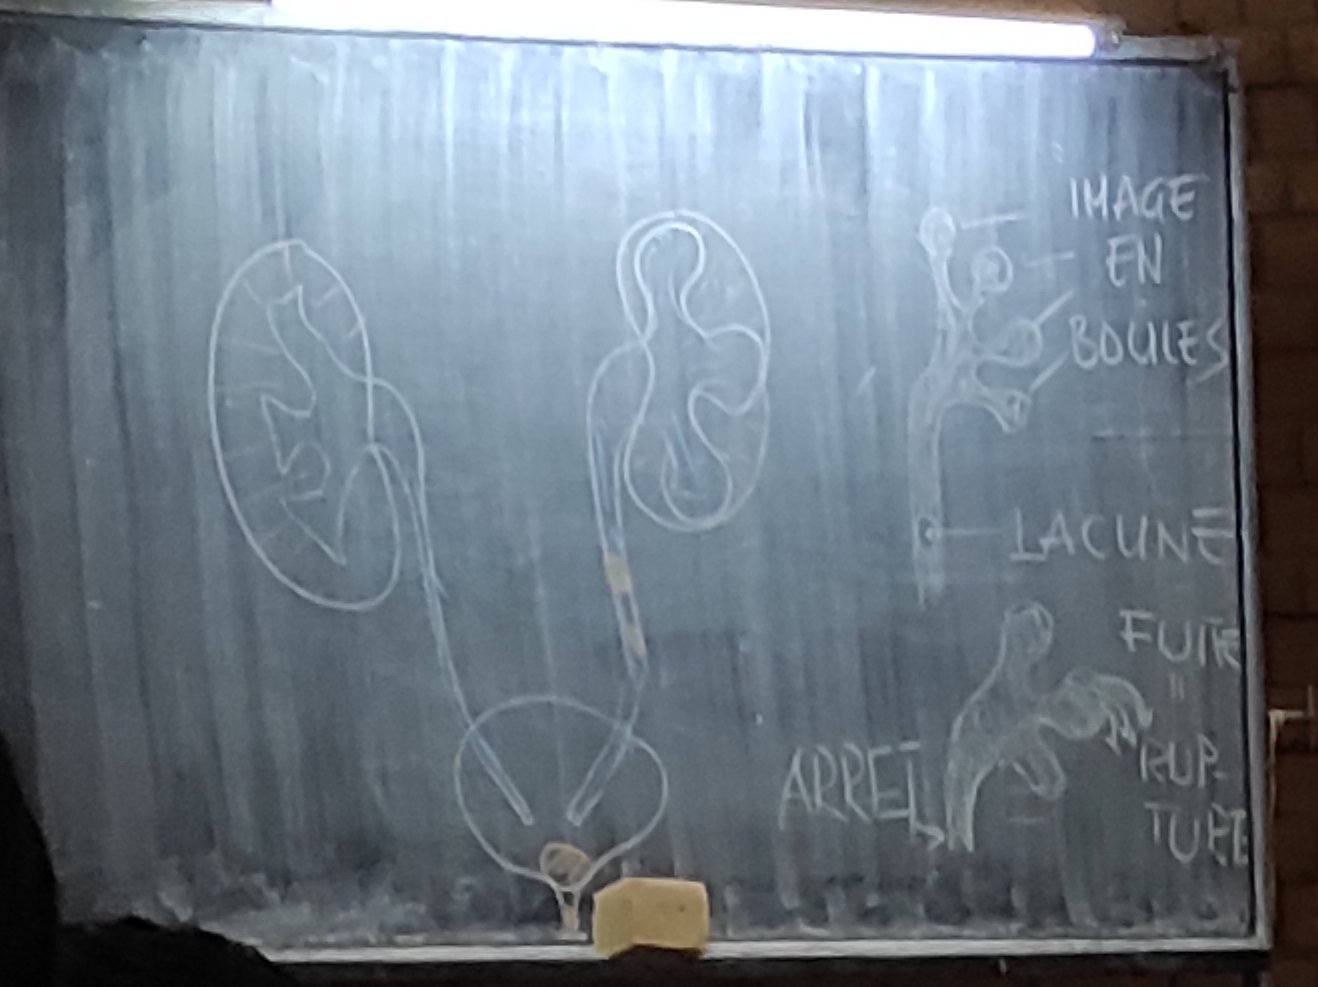 IMAGE
EN
BOULES
LACUNE
FUITE
"
RUP-
TURE
ARRET